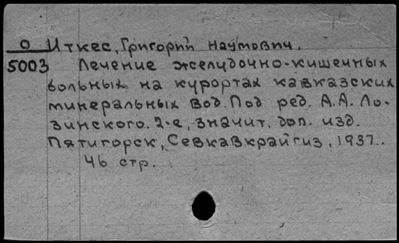 О Иткес, Григорий Наумович.
5003 Лечение желудочно-кишечных
больных на курортах кавказских
минеральных вод. Под ред. А.А. Ло-
зинского. 2-е, значит. доп. изд.
Пятигорск, Севкавкрайгиз, 1937.
46 стр.